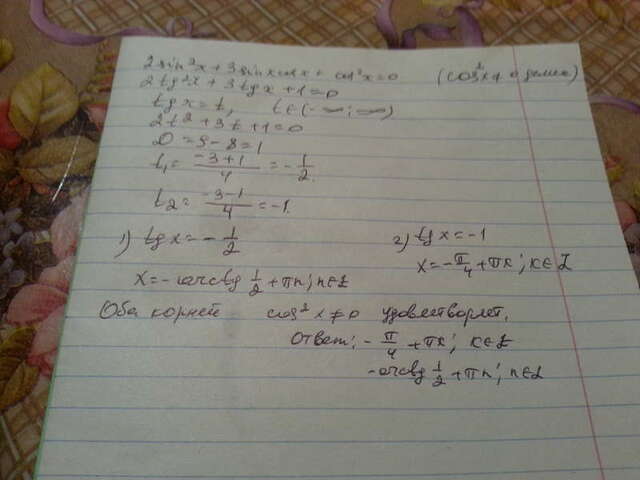 2sin²x + 3sinxcosx + cos²x = 0 (cos²x ≠ 0 делим)
2tg²x + 3tgx + 1 = 0
tgx = t, t ∈ (-∞; ∞)
2t² + 3t + 1 = 0
D = 9 - 8 = 1
t₁ = (-3+1)/4 = -1/2.
t₂ = (-3-1)/4 = -1.
1) tgx = -1/2
x = -arctg 1/2 + πn; n ∈ Z
2) tgx = -1
x = -π/4 + πk; k ∈ Z
Оба корней cos²x ≠ 0 удовлетворяет.
Ответ: -π/4 + πk; k ∈ Z
-arctg 1/2 + πn; n ∈ Z